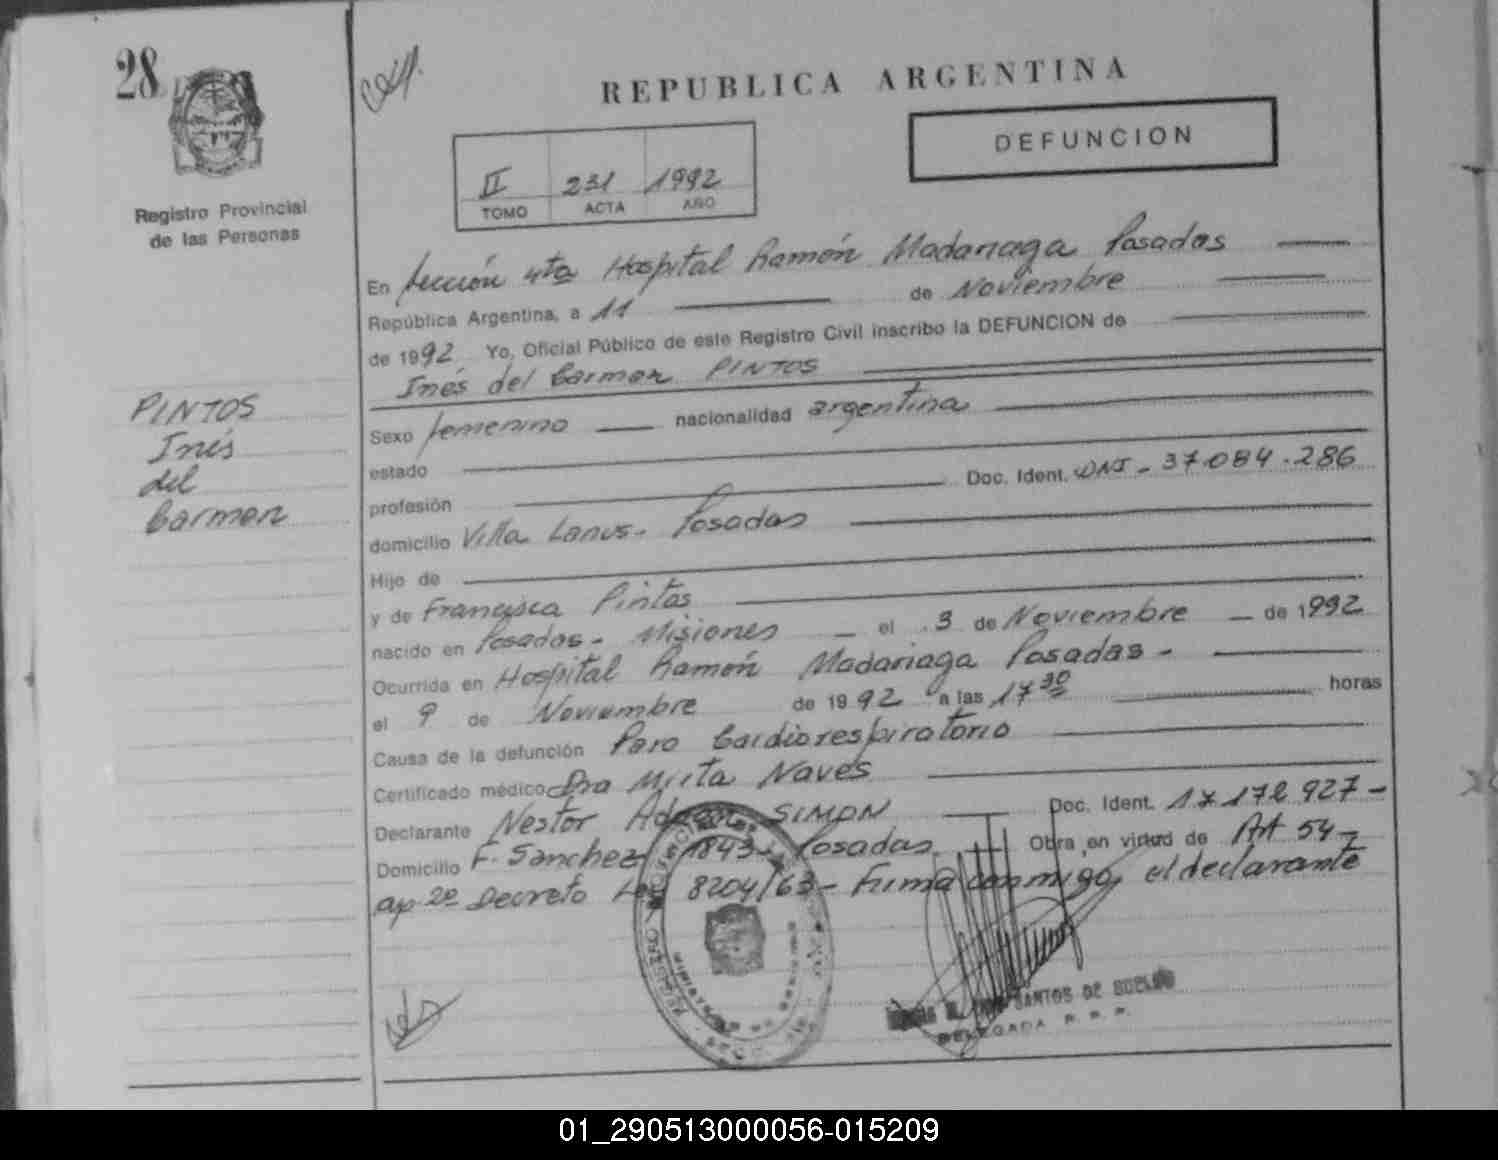 28
REPUBLICA ARGENTINA
DEFUNCION
II 231 1992
TOMO ACTA AÑO
Registro Provincial
de las Personas
En Sección 4ta Hospital Ramón Madariaga Posadas
República Argentina, a 11 de Noviembre
de 1992 Yo, Oficial Público de este Registro Civil inscribo la DEFUNCION de
Inés del Carmen PINTOS
PINTOS
Inés
del
Carmen
Sexo femenino nacionalidad argentina
estado
profesión Doc. Ident. DNI - 37.084.286
domicilio Villa Lanus - Posadas
Hijo de
y de Francisca Pintos
nacido en Posadas - Misiones el 3 de Noviembre de 1992
Ocurrida en Hospital Ramón Madariaga Posadas -
el 9 de Noviembre de 1992 a las 17 30 horas
Causa de la defunción Paro Cardiorespiratorio
Certificado médico Dra Mirta Naves
Declarante Nestor SIMON Doc. Ident. 17.172.927 -
Domicilio F. Sanchez 1843 - Posadas Obra en virtud de Art 54
ap. 2º Decreto Ley 8204/63 - Firma conmigo, el declarante
SANTOS DE
DELEGADA R. P. P.
01_290513000056-015209